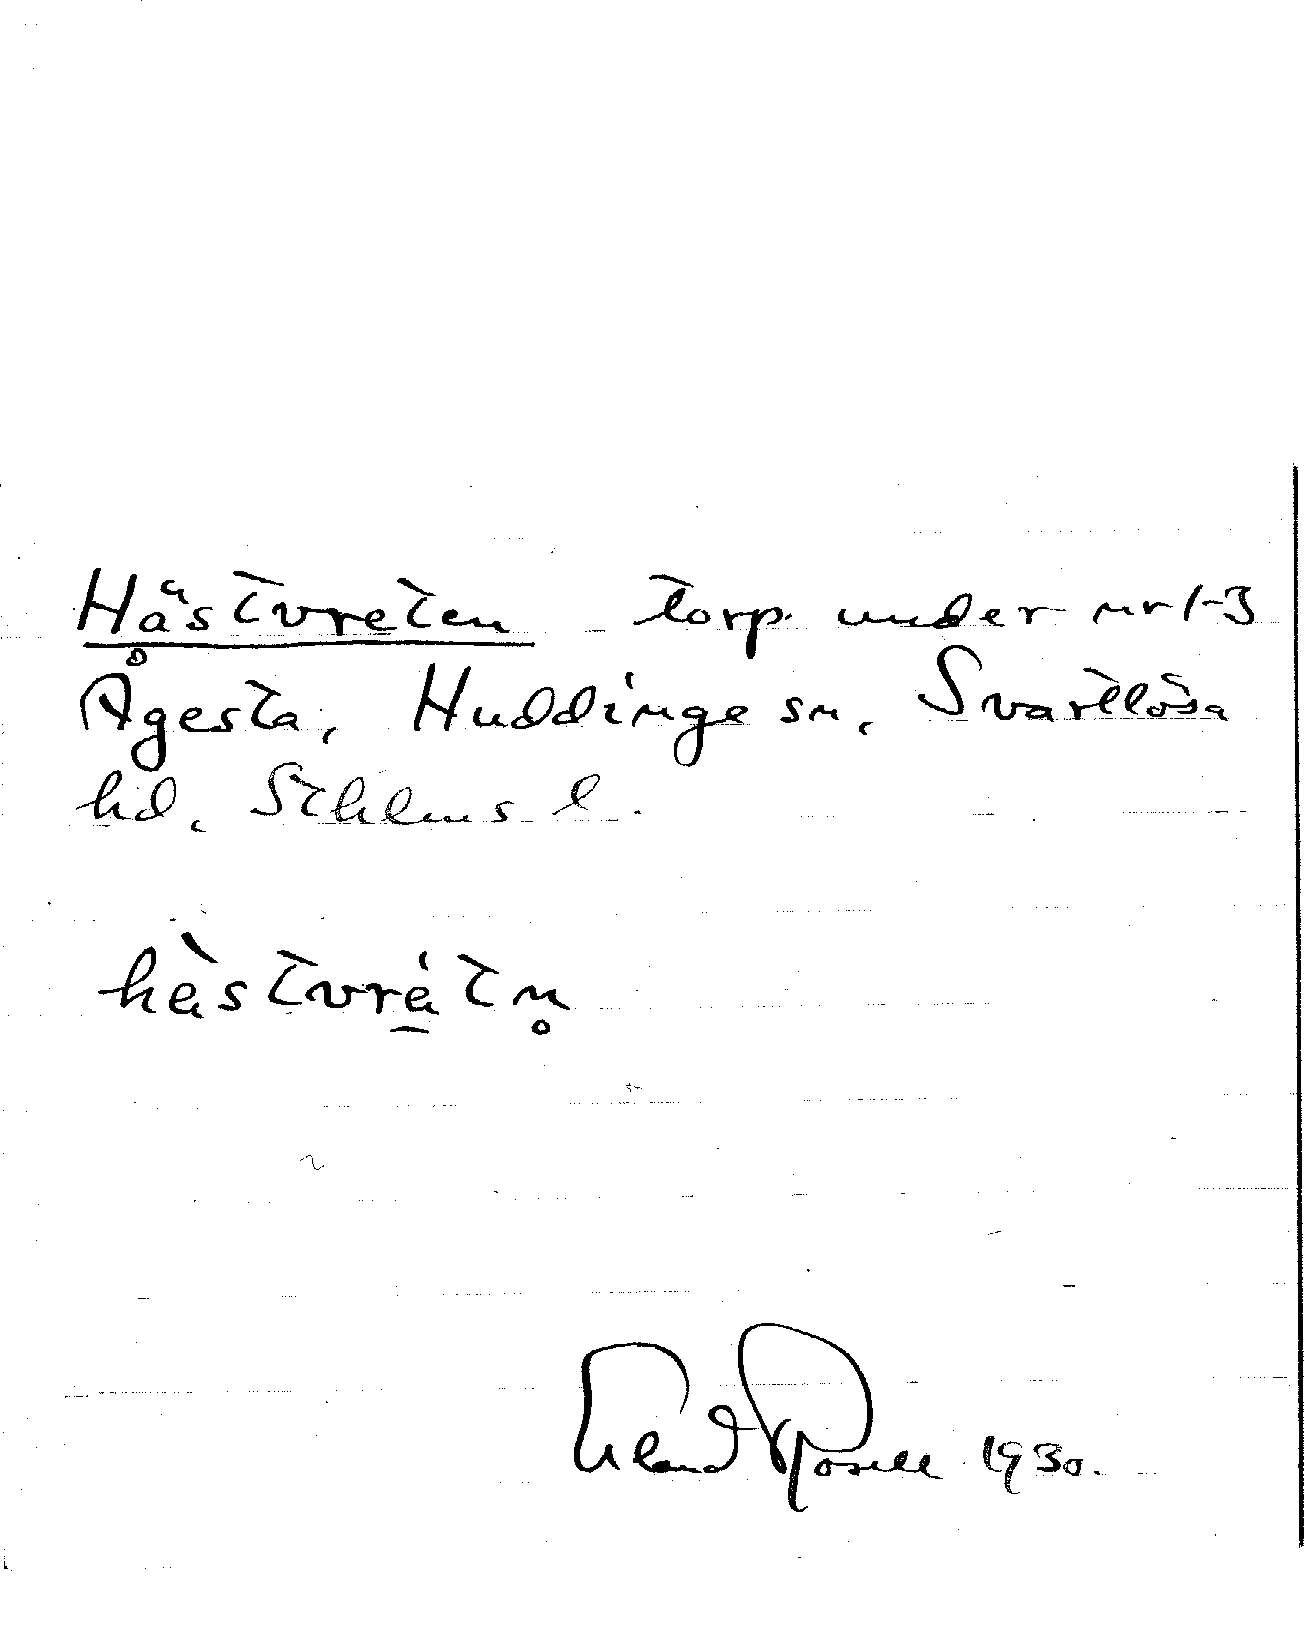 Hästvreten torp under nr 1-3
Ågesta, Huddinge sn, Svartlösa
hd, Sthlms l.
hàstvrétn̥
Erland Rosell 1930.